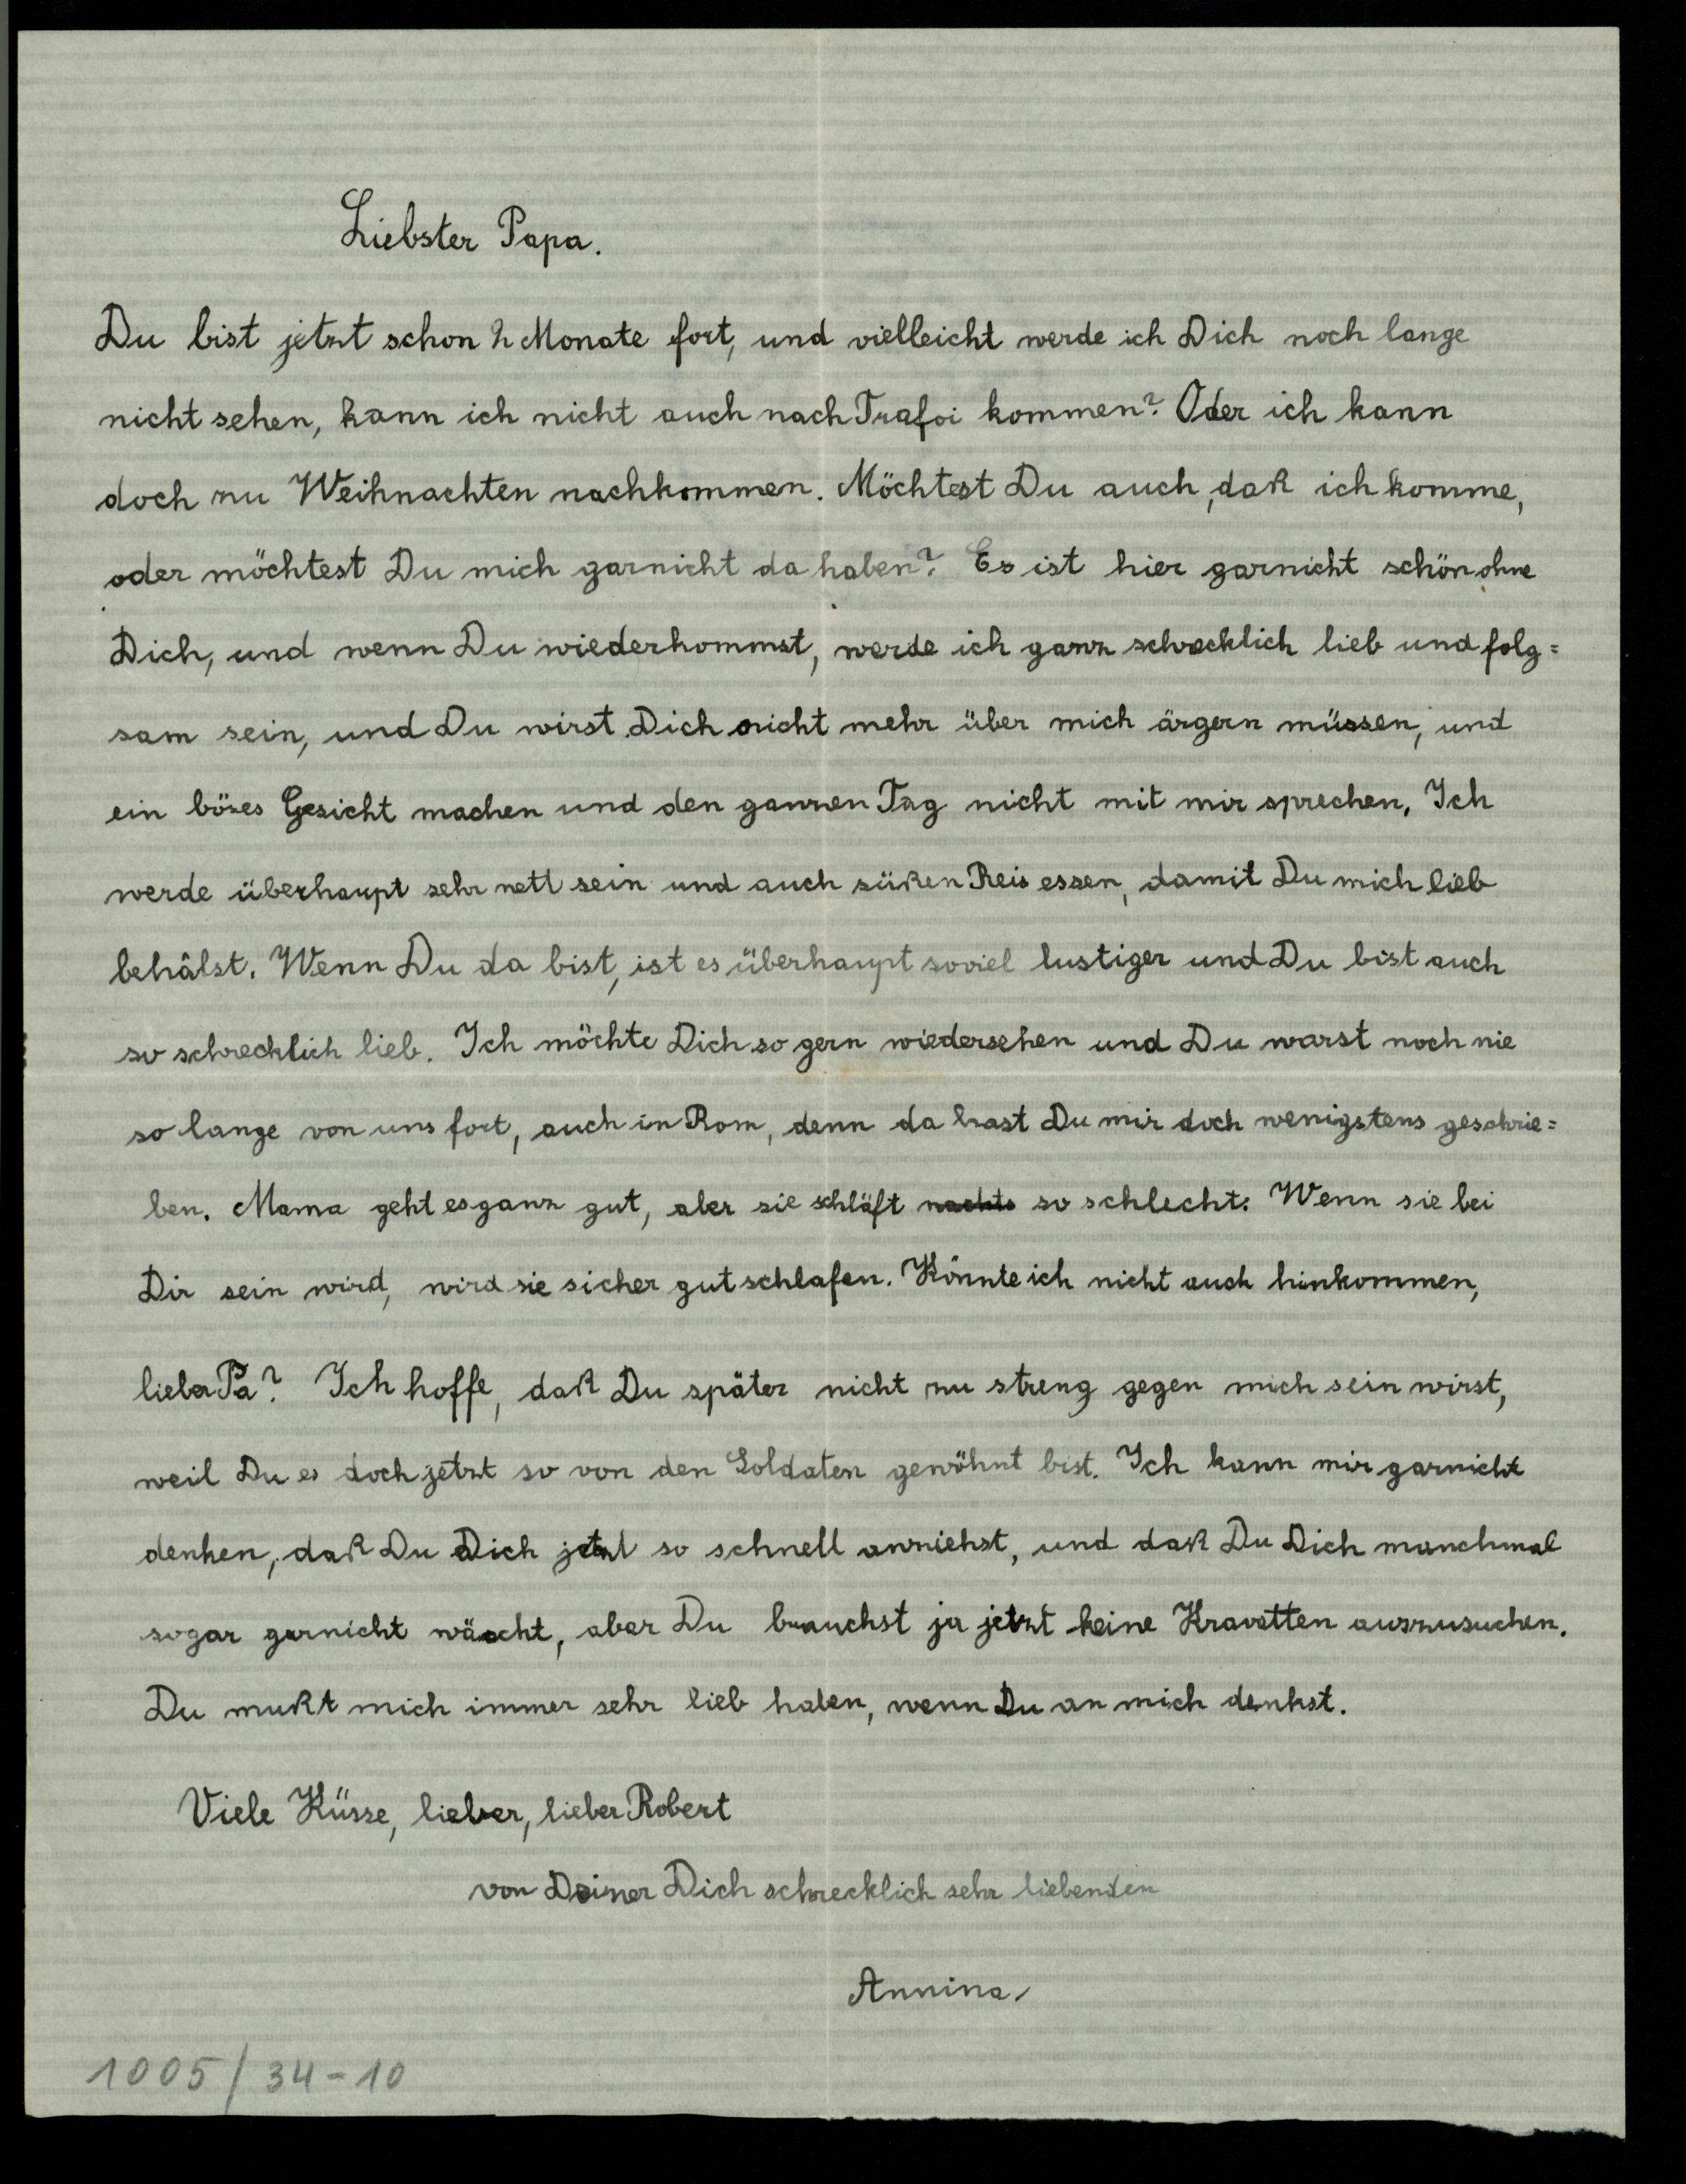 Liebster Papa.
Du bist jetzt schon 2 Monate fort, und vielleicht werde ich Dich noch lange
nicht sehen, kann ich nicht auch nach Trafoi kommen? Oder ich kann
doch zu Weihnachten nachkommen. Möchtest Du auch, daß ich komme,
oder möchtest Du mich garnicht da haben? Es ist hier garnicht schön ohne
Dich, und wenn Du wiederkommst, werde ich ganz schrecklich lieb und folg=
sam sein, und Du wirst Dich nicht mehr über mich ärgern müssen, und
ein böses Gesicht machen und den ganzen Tag nicht mit mir sprechen. Ich
werde überhaupt sehr nett sein und auch süßen Reis essen, damit Du mich lieb
behälst. Wenn Du da bist, ist es überhaupt soviel lustiger und Du bist auch
so schrecklich lieb. Ich möchte Dich so gern wiedersehen und Du warst noch nie
so lange von uns fort, auch in Rom, denn da hast Du mir doch wenigstens geschrie=
ben. Mama geht es ganz gut, aber sie schläft nachts so schlecht. Wenn sie bei
Dir sein wird, wird sie sicher gut schlafen. Könnte ich nicht auch hinkommen,
lieber Pa? Ich hoffe, daß Du später nicht zu streng gegen mich sein wirst,
weil Du es doch jetzt so von den Soldaten gewöhnt bist. Ich kann mir garnicht
denken, daß Du Dich jetzt so schnell anziehst, und daß Du Dich manchmal
sogar garnicht wäscht, aber Du brauchst ja jetzt keine Kravatten auszusuchen.
Du mußt mich immer sehr lieb haben, wenn Du an mich denkst.
Viele Küsse, lieber, lieber Robert
von Deiner Dich schrecklich sehr liebenden
Annina.
1005/34-10